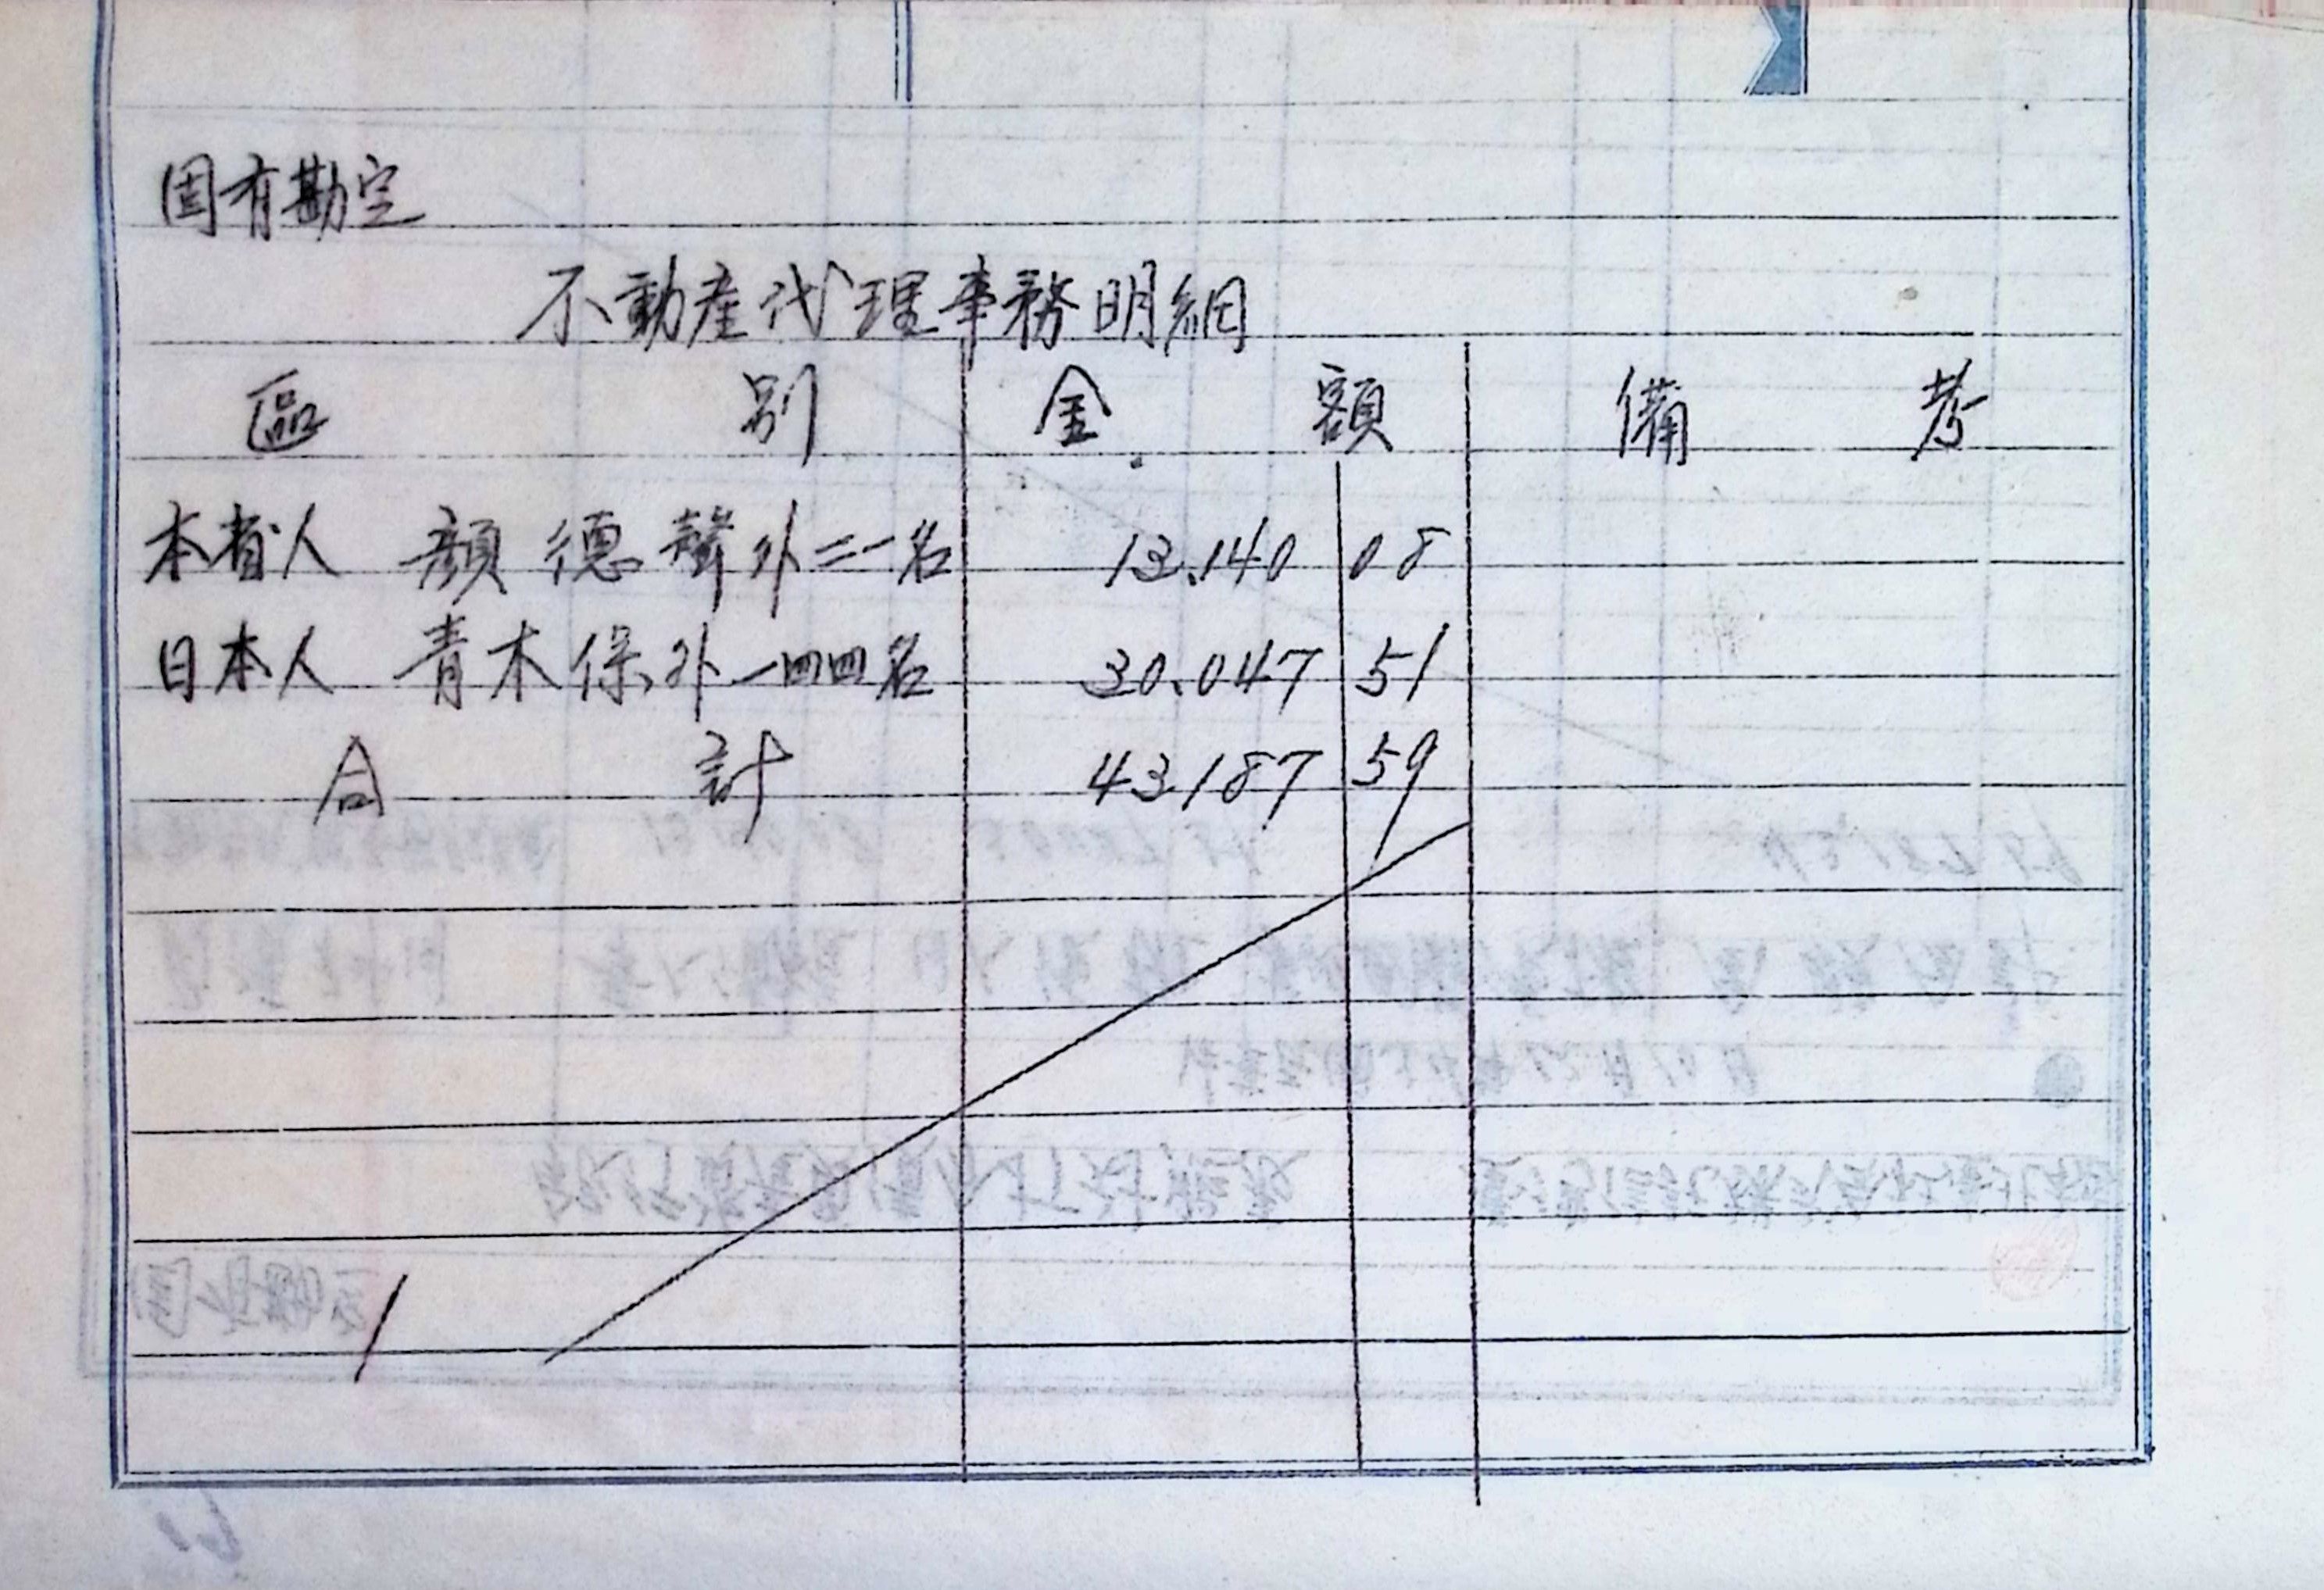 固有勘定
不動産代理事務明細
區別 金額 備考
本省人 顏德聲外二一名 13.140 08
日本人 青木保外一四四名 30.047 51
合計 43.187 59